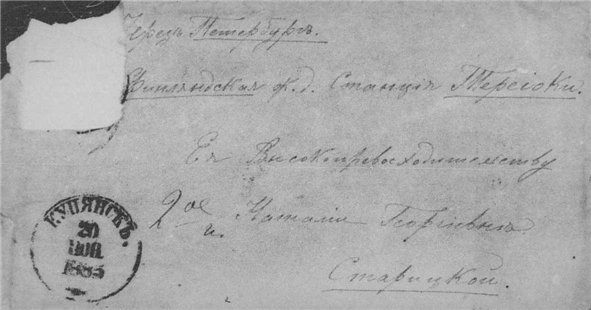 Черезъ Петербургъ.
Финляндская ж.д. Станція Теріоки.
Ея Высокопревосходительству
2ое Наталіи Георгіевнѣ
Старицкой.
КУПЯНСКЪ.
20